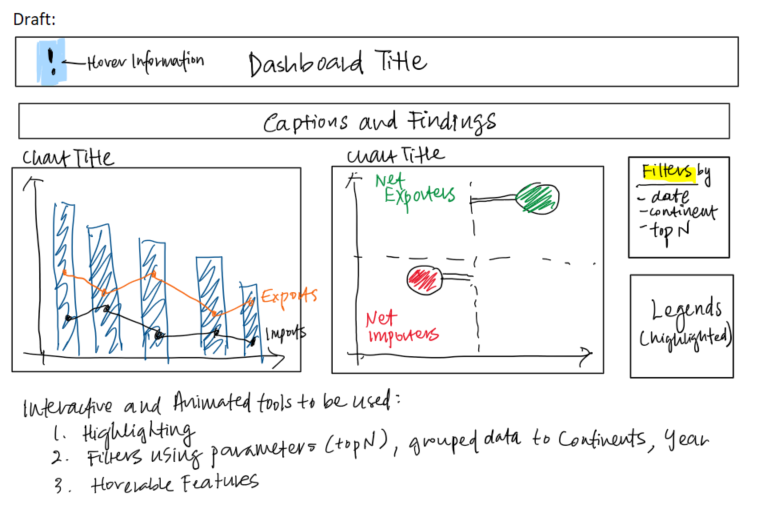 Draft:
! ←Hover Information
Dashboard Title
Captions and Findings
Chart Title
Exports
Imports
Chart Title
Net
Exporters
Net
Importers
Filters by
- date
- continent
- top N
Legends
(highlighted)
Interactive and Animated tools to be used:
1. Highlighting
2. Filters using parameters (top N), grouped data to Continents, year
3. Hoverable Features